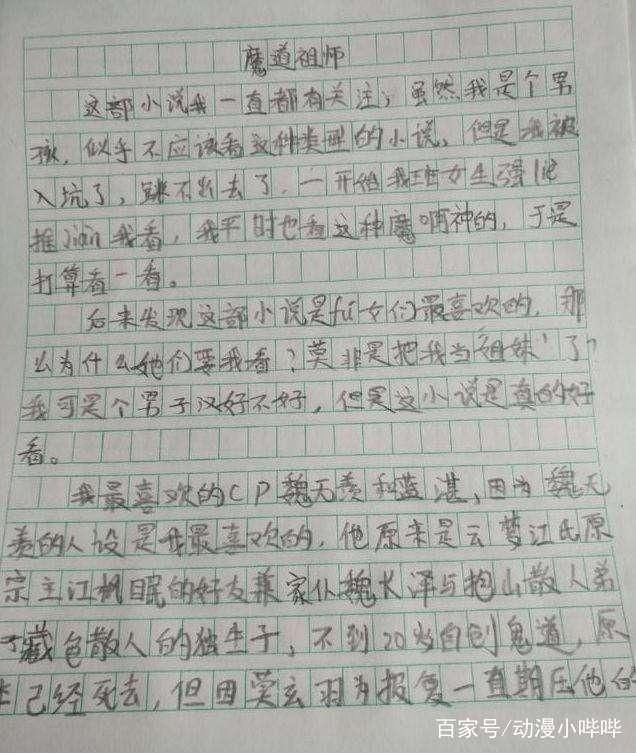 魔道祖师
这部小说我一直都有关注，虽然我是个男
孩，似乎不应该看这种类型的小说，但是我被
入坑了，跳不出去了，一开始我班女生强烈
推jiàn我看，我平时也看这种魔啊神的，于是
打算看一看。
后来发现这部小说是fǔ女们最喜欢的，那
么为什么她们要我看？莫非是把我当"姐妹"了？
我可是个男子汉好不好，但是这小说是真的好
看。
我最喜欢的CP魏无羡和蓝湛，因为魏无
羡的人设是我最喜欢的，他原来是云梦江氏原
宗主江枫眠的好友兼家仆魏长泽与抱山散人弟
子藏色散人的独生子，不到20岁自创鬼道，原
本已经死去，但因莫玄羽为报复一直期压他的
百家号/动漫小哔哔